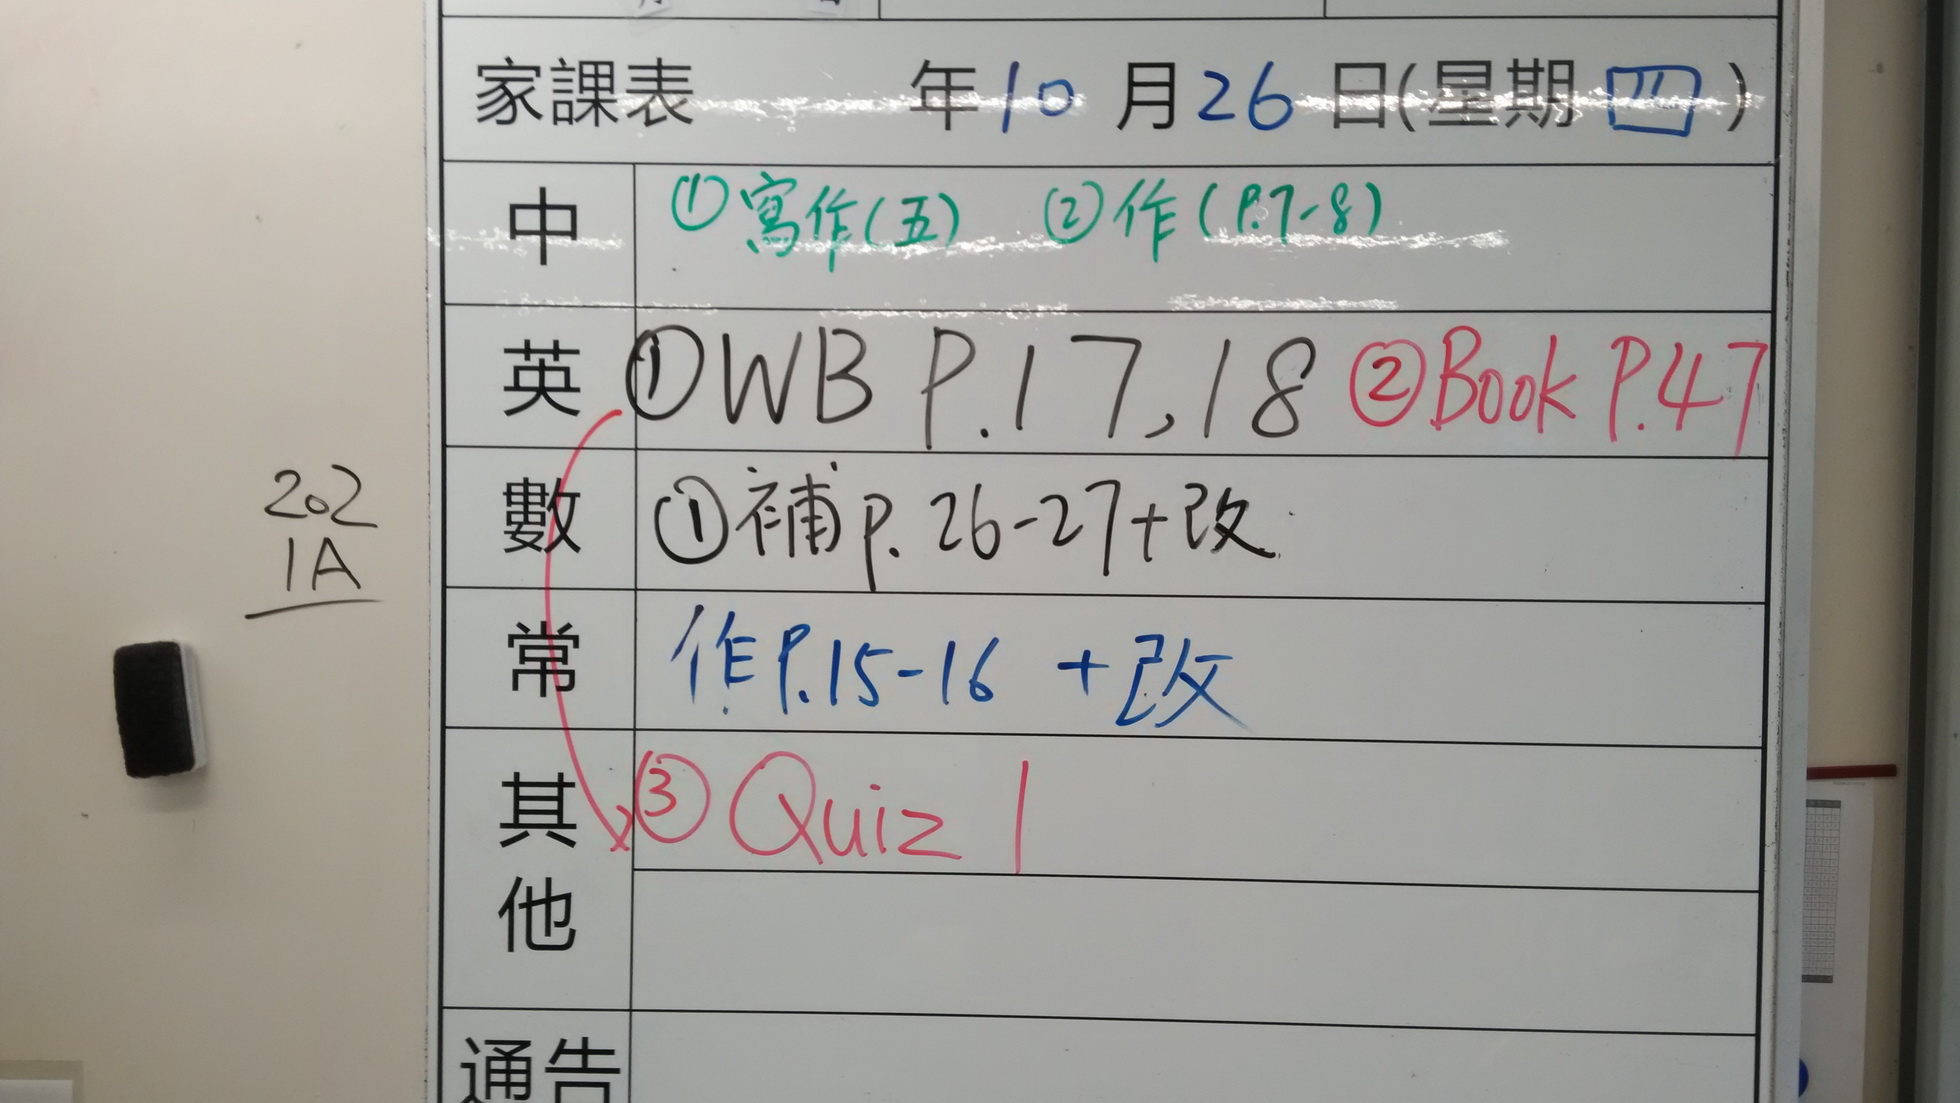 家課表 年10月26日(星期四)
中 ①寫作(五) ②作(P.7-8)
英 ①WB P.17,18 ②Book P.47
數 ①補P.26-27+改
常 作P.15-16 +改
其他 ③Quiz 1
通告
202
1A